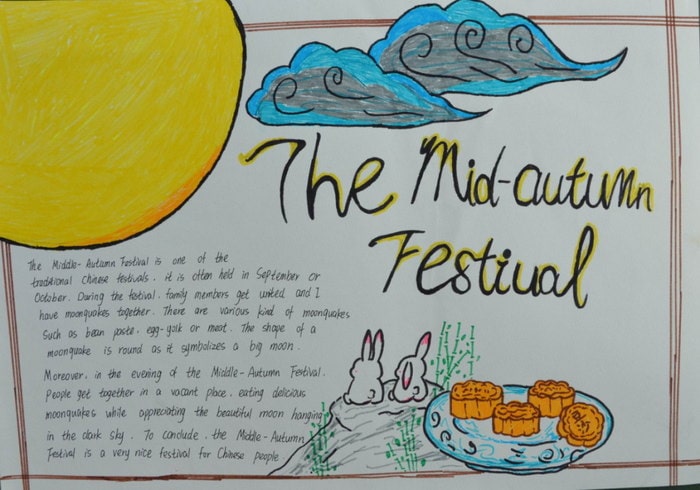 The Mid-autumn
Festival
The Middle-Autumn Festival is one of the
traditional Chinese festivals. it is often held in September or
October. During the festival, family members get united and I
have moonquakes together. There are various kind of moonquakes
such as bean paste, egg-yolk or meat. The shape of a
moonquake is round as it symbolizes a big moon.
Moreover, in the evening of the Middle-Autumn Festival.
People get together in a vacant place, eating delicious
moonquakes while appreciating the beautiful moon hanging
in the dark sky. To conclude, the Middle-Autumn
Festival is a very nice festival for Chinese people.
豆沙